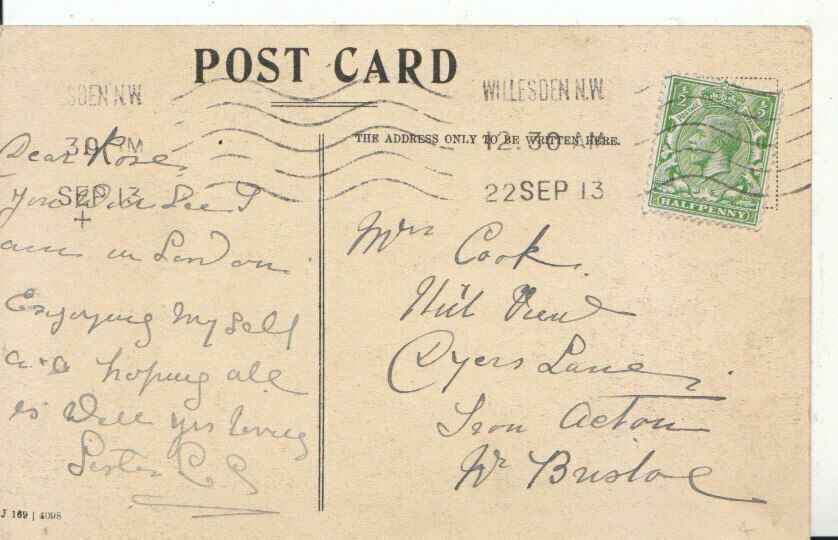 POST CARD
SDEN N.W.
30 PM
SEP 13
WILLESDEN N.W.
12.30 AM
22 SEP 13
½ ½
POSTAGE
HALFPENNY
THE ADDRESS ONLY TO BE WRITTEN HERE.
Dear Rose
you will see I
am in London
Enjoying my self
and hoping all
is Well yrs loving
Sister
Mrs Cook
Hill View
Dyers Lane
Iron Acton
Nr Bristol
J 169 | 4098
4